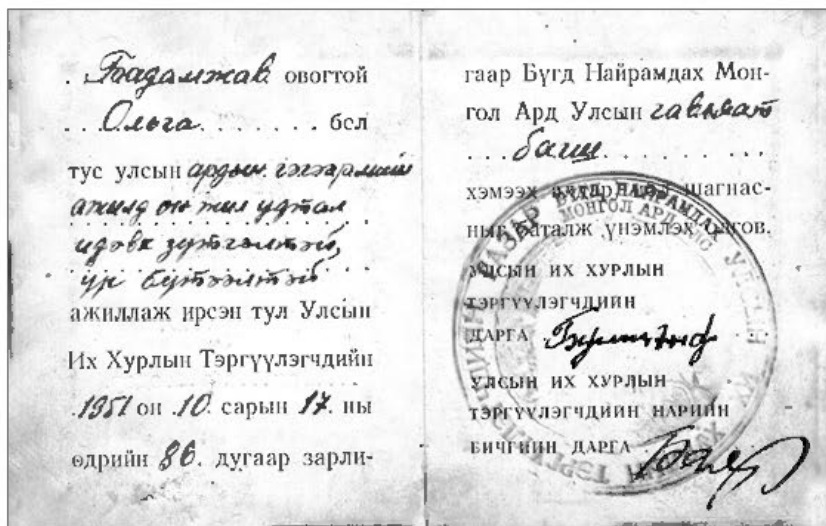 . . Бадамжав овогтой
. . . Ольга. . . . . . . бол
тус улсын ардын гэгээрлийн
ажилд он жил удтал
идэвх зүтгэлтэй,
үр бүтээлтэй
ажиллаж ирсэн тул Улсын
Их Хурлын Тэргүүлэгчдийн
.1951 он .10. сарын 17. ны
өдрийн 86. дугаар зарли-
гаар Бүгд Найрамдах Мон-
гол Ард Улсын гавьяат
. . . багш. . . . . . . . .
хэмээх цолоор шагнас-
ныг баталж үнэмлэх олгов.
УЛСЫН ИХ ХУРЛЫН
ТЭРГҮҮЛЭГЧДИЙН
ДАРГА
УЛСЫН ИХ ХУРЛЫН
ТЭРГҮҮЛЭГЧДИЙН НАРИЙН
БИЧГИЙН ДАРГА